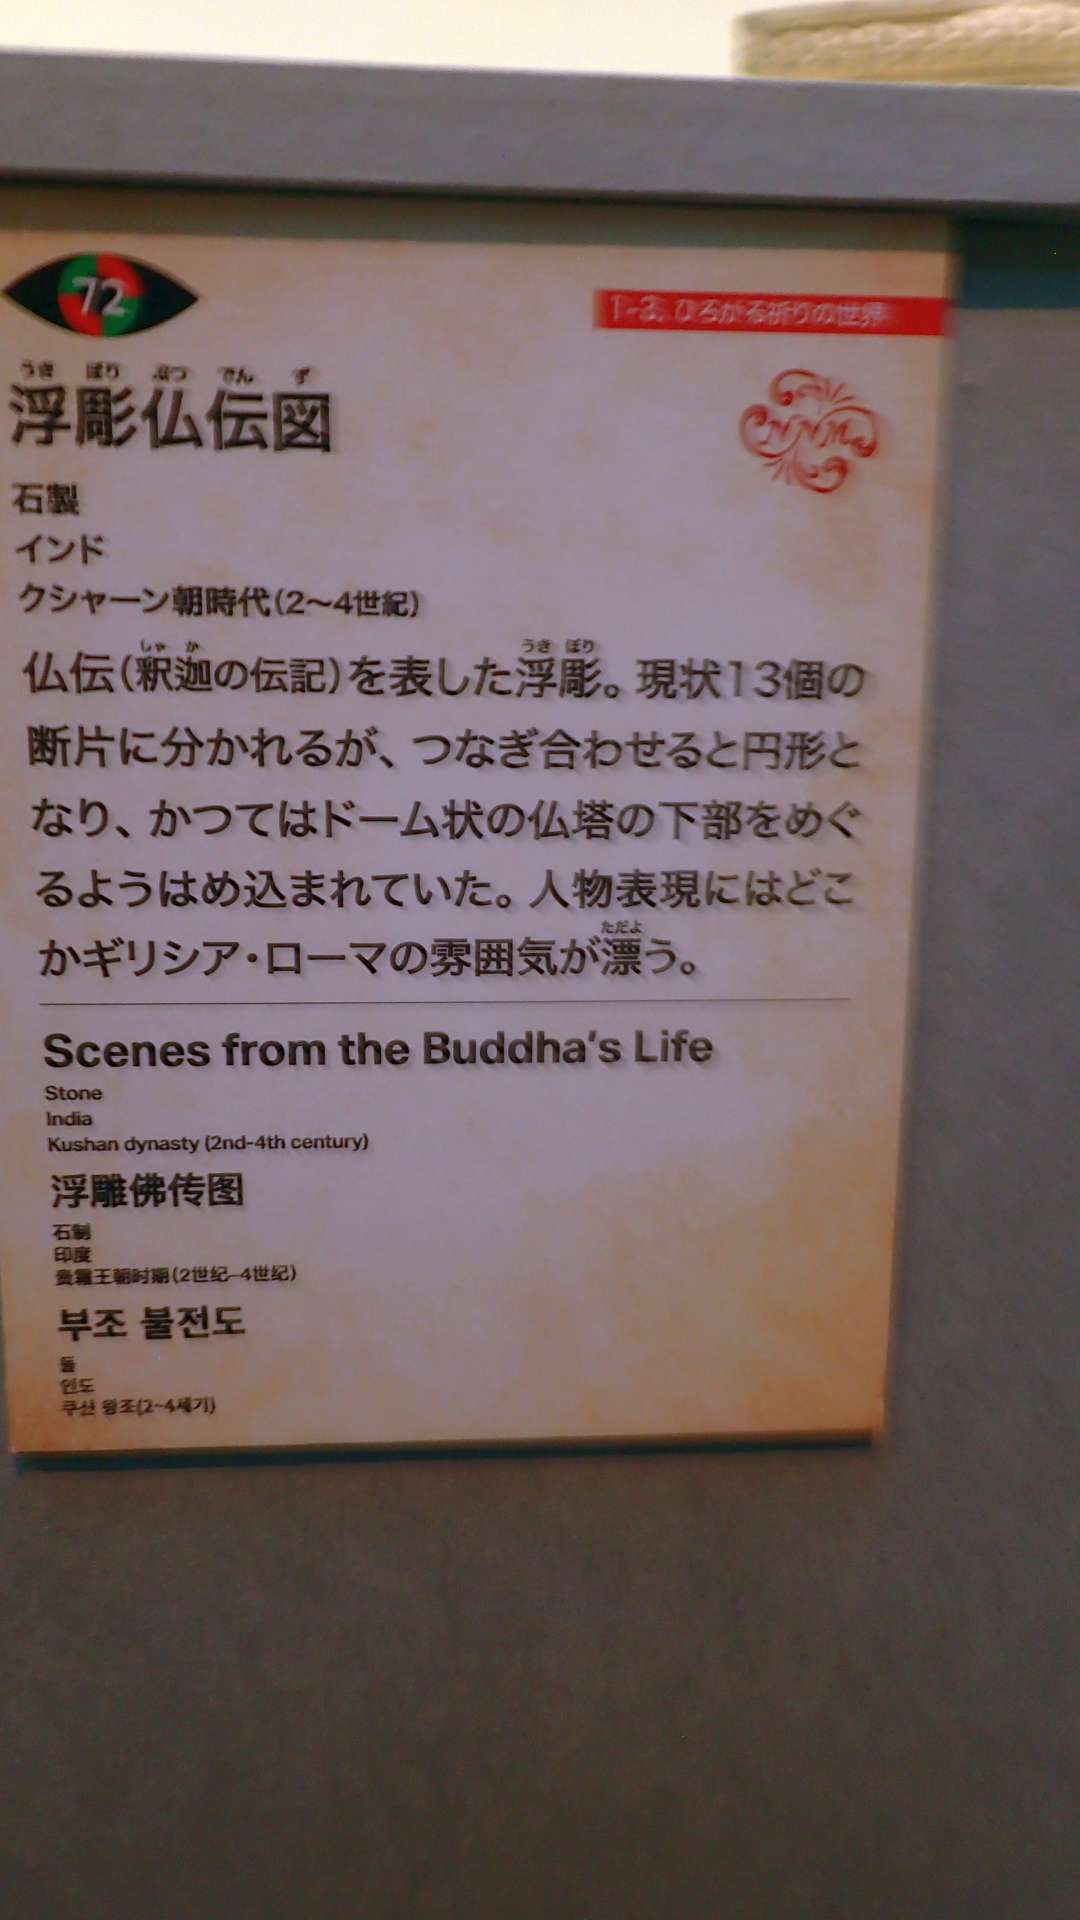 72
1-3. ひろがる祈りの世界
うき ぼり ぶつ でん ず
浮彫仏伝図
NNM
石製
インド
クシャーン朝時代(2〜4世紀)
しゃ か うき ぼり
仏伝(釈迦の伝記)を表した浮彫。現状13個の
断片に分かれるが、つなぎ合わせると円形と
なり、かつてはドーム状の仏塔の下部をめぐ
るようはめ込まれていた。人物表現にはどこ
ただよ
かギリシア・ローマの雰囲気が漂う。
Scenes from the Buddha's Life
Stone
India
Kushan dynasty (2nd-4th century)
浮雕佛传图
石制
印度
贵霜王朝时期(2世纪–4世纪)
부조 불전도
돌
인도
쿠샨 왕조(2~4세기)